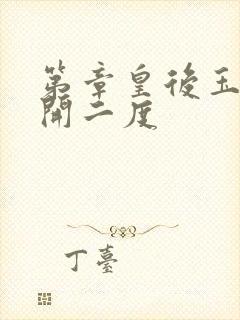 第章皇後玉
開二度
丁臺